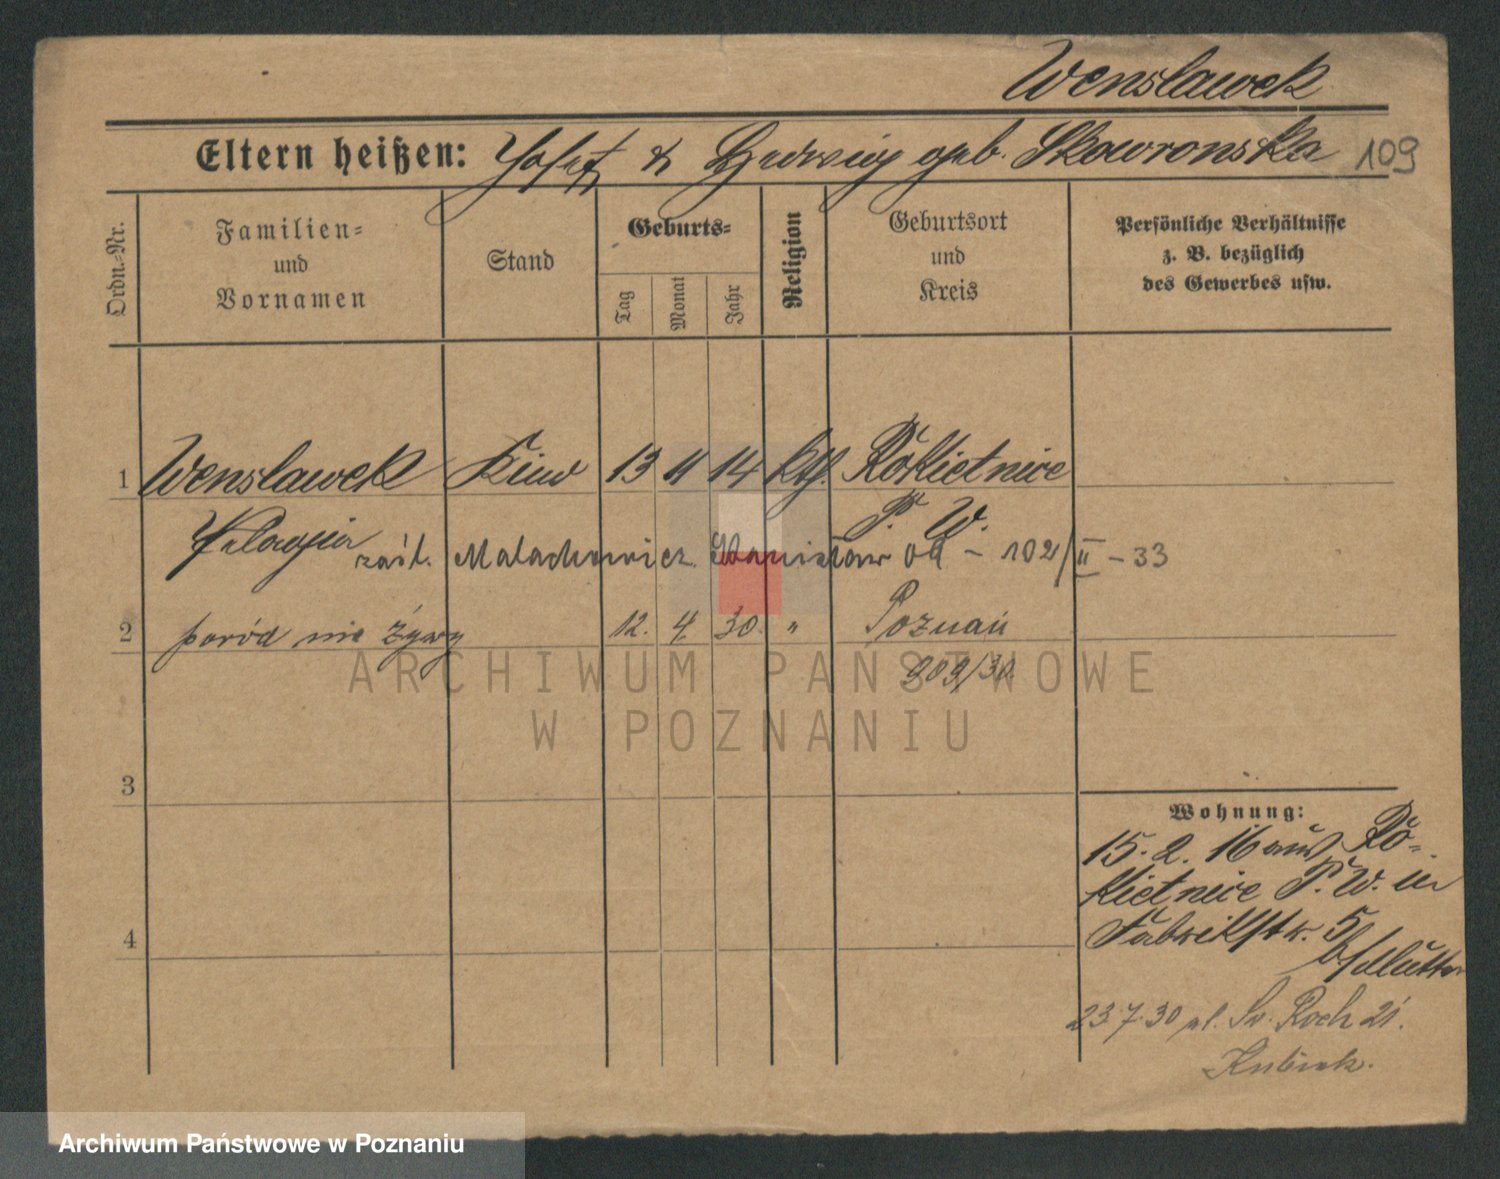 Wenslawek
Eltern heißen: Josef & Hedwig geb. Skowronska 109
Ordn.-Nr.
Familien- und Vornamen
Stand
Geburts-
Tag
Monat
Jahr
Religion
Geburtsort und Kreis
Persönliche Verhältnisse z. B. bezüglich des Gewerbes usw.
1 Wenslawek Kind 13 11 14 kth. Rokietnice
Pelagia P. W.
zaśl. Malachowicz Stanisław 09 - 102/II - 33
2 poród nie żywy 12. 4. 30. " Poznań
909/30.
3
4
Wohnung:
15. 2. 16 aus Ro=
kietnice P. W. in
Fabrikstr. 5
b/Mutter
23.7.30 ul. Sw. Roch 21.
Kubiak.
ARCHIWUM PAŃSTWOWE
W POZNANIU
Archiwum Państwowe w Poznaniu